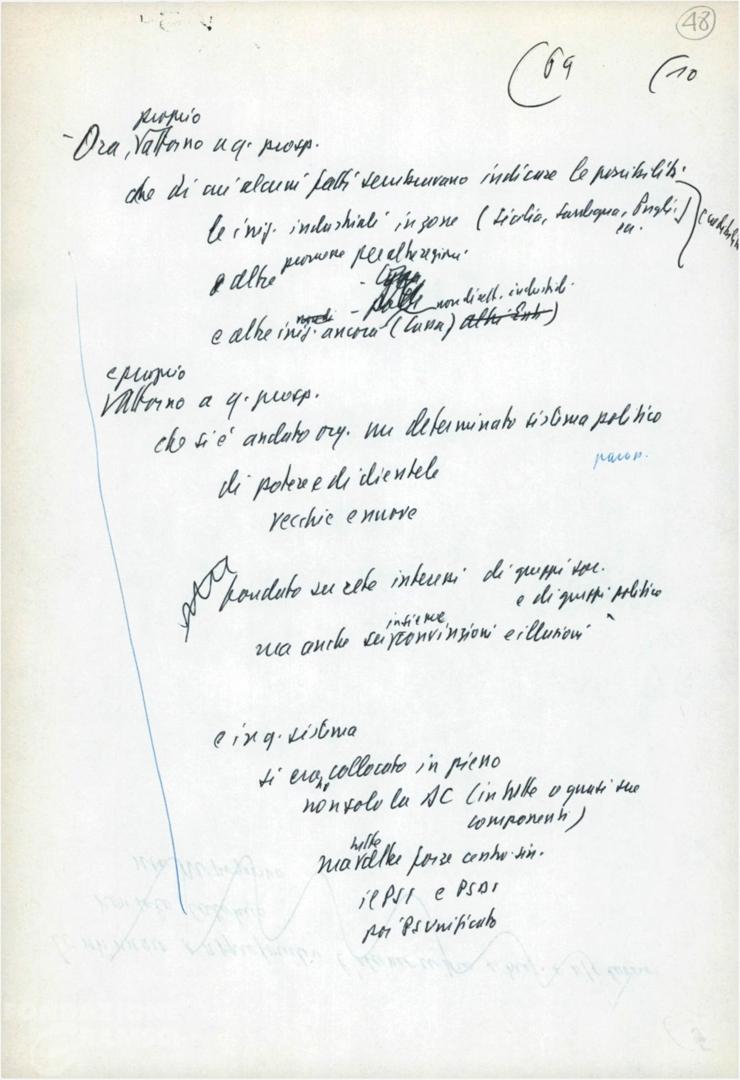 48
(69 (10
proprio
- Ora, attorno a q. prosp.
che di cui alcuni fatti sembravano indicare le possibilità
le iniz. industriali in zone (Sicilia, Sardegna, Puglie
ecc.
promesse per altre regioni.
e altre
non dirett. industriali
e altre iniz. ancora (Cassa) altri Enti)
e proprio
attorno a q. prosp.
che si è andato org. un determinato sistema politico
di potere e di clientele
vecchie e nuove
fondato su rete interessi di gruppi soc.
e di gruppi politico
insieme
ma anche su convinzioni e illusioni
e in q. sistema
si era collocato in pieno
non solo la DC (in tutte o quasi sue
componenti)
tutte
ma altre forze centro-sin.
il PSI e PSDI
poi PSUnificato
FONDAZIONE
GRAMSCI